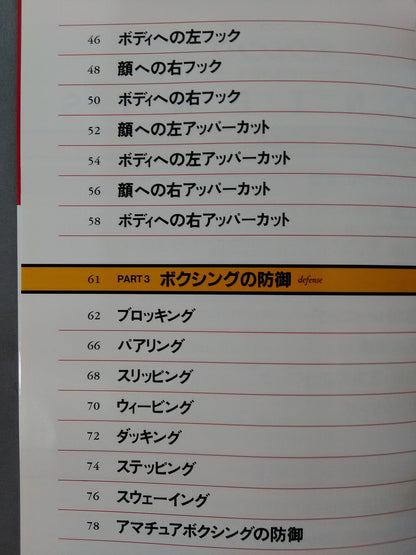 46 ボディへの左フック
48 顔への右フック
50 ボディへの右フック
52 顔への左アッパーカット
54 ボディへの左アッパーカット
56 顔への右アッパーカット
58 ボディへの右アッパーカット
61 PART3 ボクシングの防御 defense
62 ブロッキング
66 パアリング
68 スリッピング
70 ウィービング
72 ダッキング
74 ステッピング
76 スウェーイング
78 アマチュアボクシングの防御